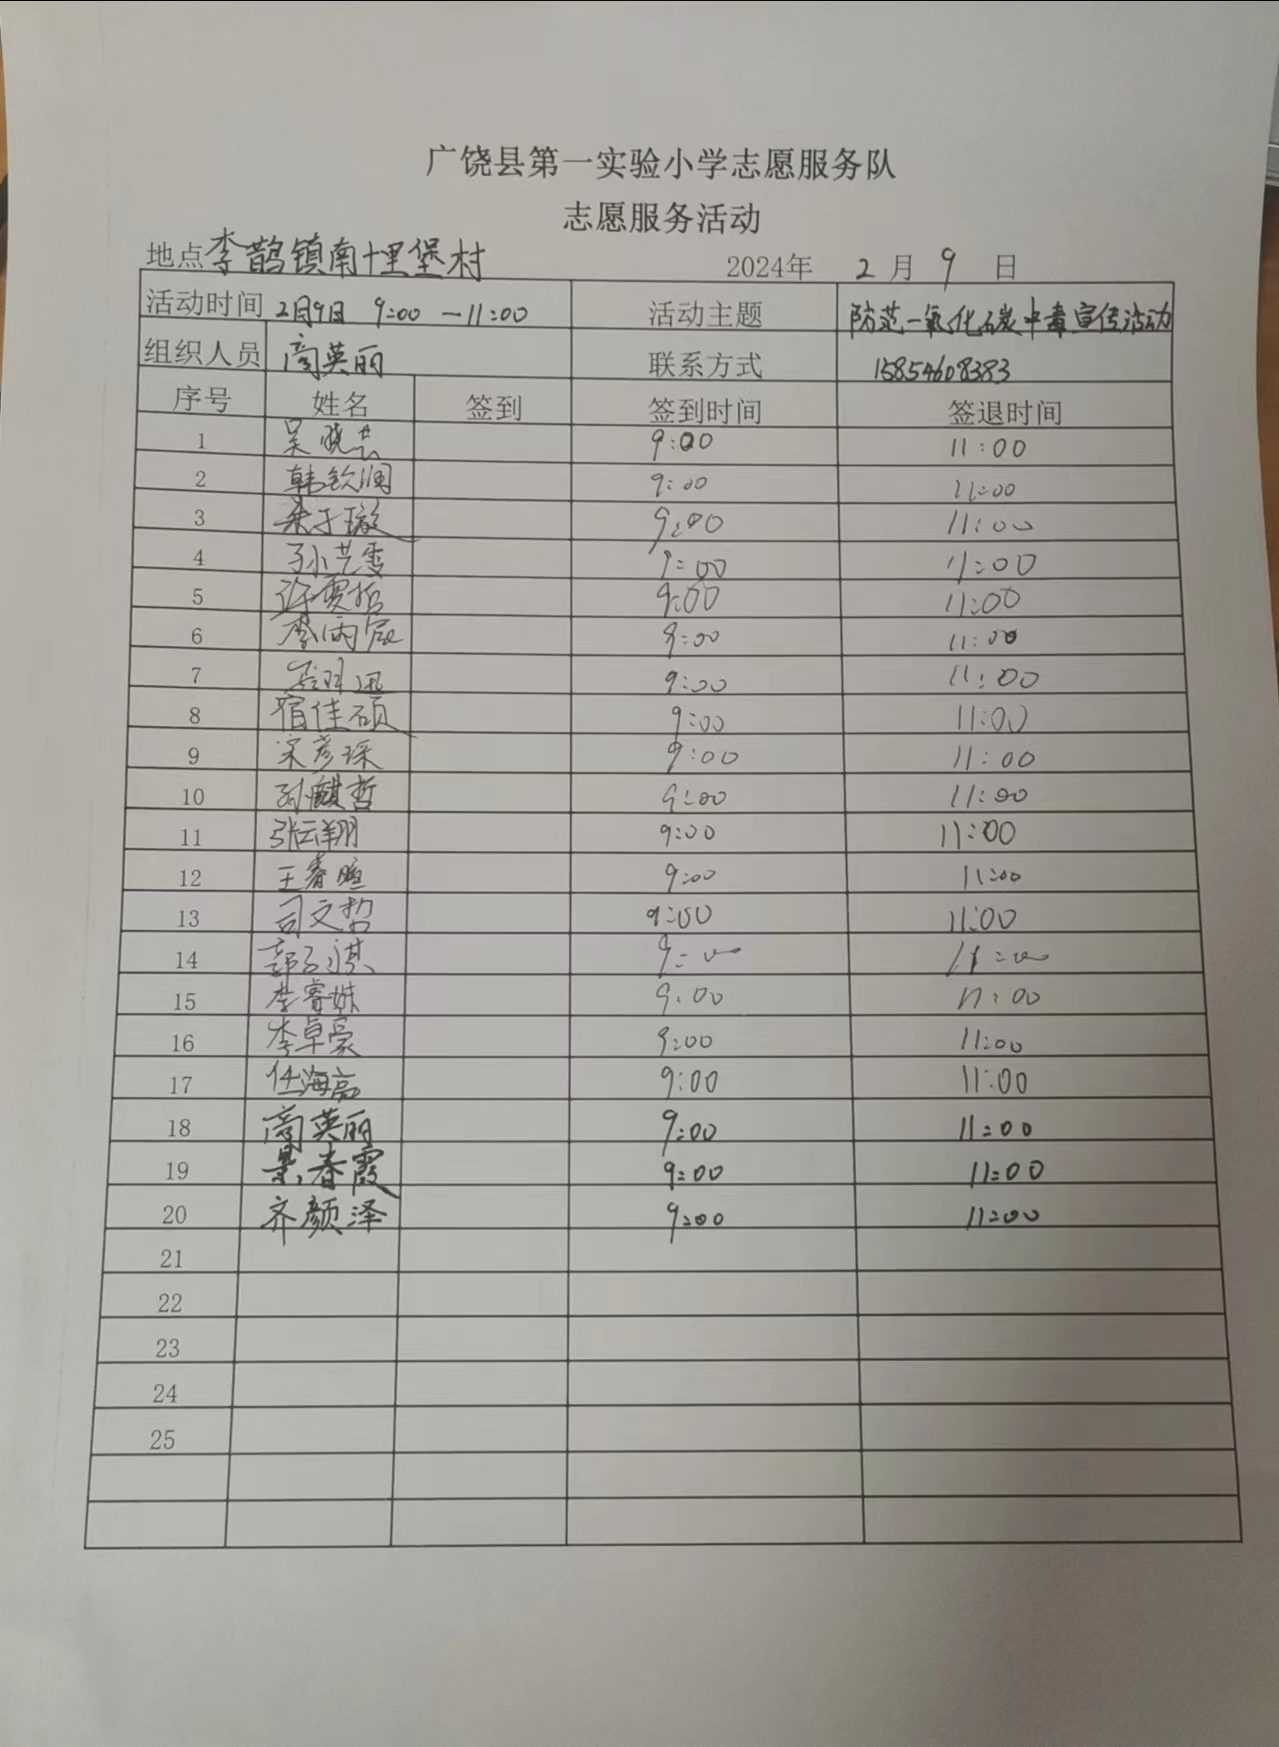 广饶县第一实验小学志愿服务队
志愿服务活动
地点 李鹊镇南十里堡村 2024年 2 月 9 日
活动时间 2月9日 9:00 —11:00 活动主题 防范一氧化碳中毒宣传活动
组织人员 商英丽 联系方式 15854608383
序号 姓名 签到 签到时间 签退时间
1 吴晓芸 9:00 11:00
2 韩钦润 9:00 11:00
3 9:00 11:00
4 孙艺雯 9:00 11:00
5 9:00 11:00
6 李丙辰 9:00 11:00
7 9:00 11:00
8 宿佳硕 9:00 11:00
9 宋彦琛 9:00 11:00
10 孙麒哲 9:00 11:00
11 张云翔 9:00 11:00
12 王睿暄 9:00 11:00
13 司文哲 9:00 11:00
14 郭子祺 9:00 11:00
15 李睿姝 9:00 11:00
16 李卓豪 9:00 11:00
17 任海高 9:00 11:00
18 商英丽 9:00 11:00
19 景春霞 9:00 11:00
20 齐颜泽 9:00 11:00
21
22
23
24
25